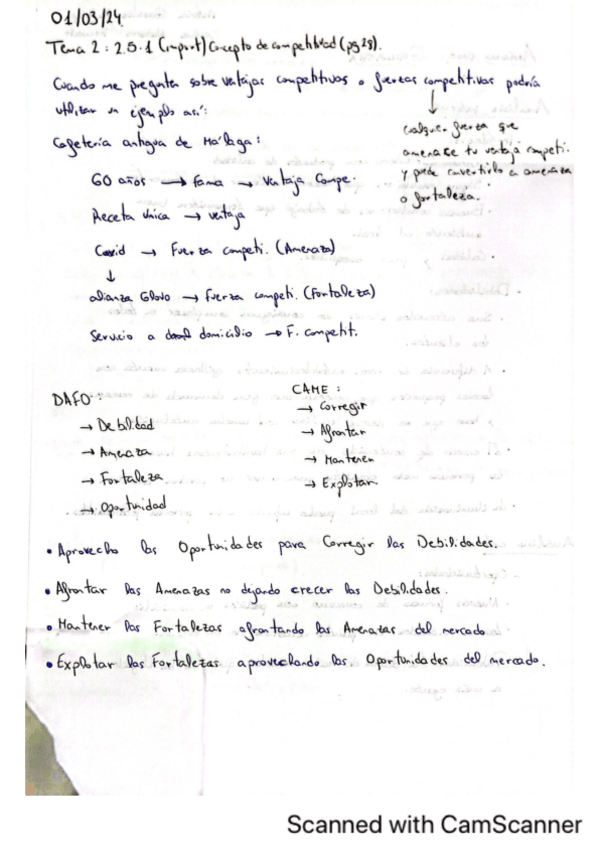 01/03/24.
Tema 2: 2.5.1 (import) Concepto de competitividad (pg 28).
Cuando me pregunten sobre ventajas competitivas o fuerzas competitivas podría
utilizar un ejemplo así:
↓
cualquier fuerza que
amenace tu ventaja competi.
y puede convertirlo en amenaza
o fortaleza.
Cafetería antigua de Málaga:
60 años → fama → Ventaja Compe.
Receta única → ventaja
Covid → Fuerza competi. (Amenaza)
↓
alianza Glovo → fuerza competi. (Fortaleza)
Servicio a domicilio → F. competit.
DAFO:
→ Debilidad
→ Amenaza
→ Fortaleza
→ Oportunidad
CAME:
→ Corregir
→ Afrontar
→ Mantener
→ Explotar
• Aprovecho las Oportunidades para Corregir las Debilidades.
• Afrontar las Amenazas no dejando crecer las Debilidades.
• Mantener las Fortalezas afrontando las Amenazas del mercado
• Explotar las Fortalezas aprovechando las Oportunidades del mercado.
Scanned with CamScanner